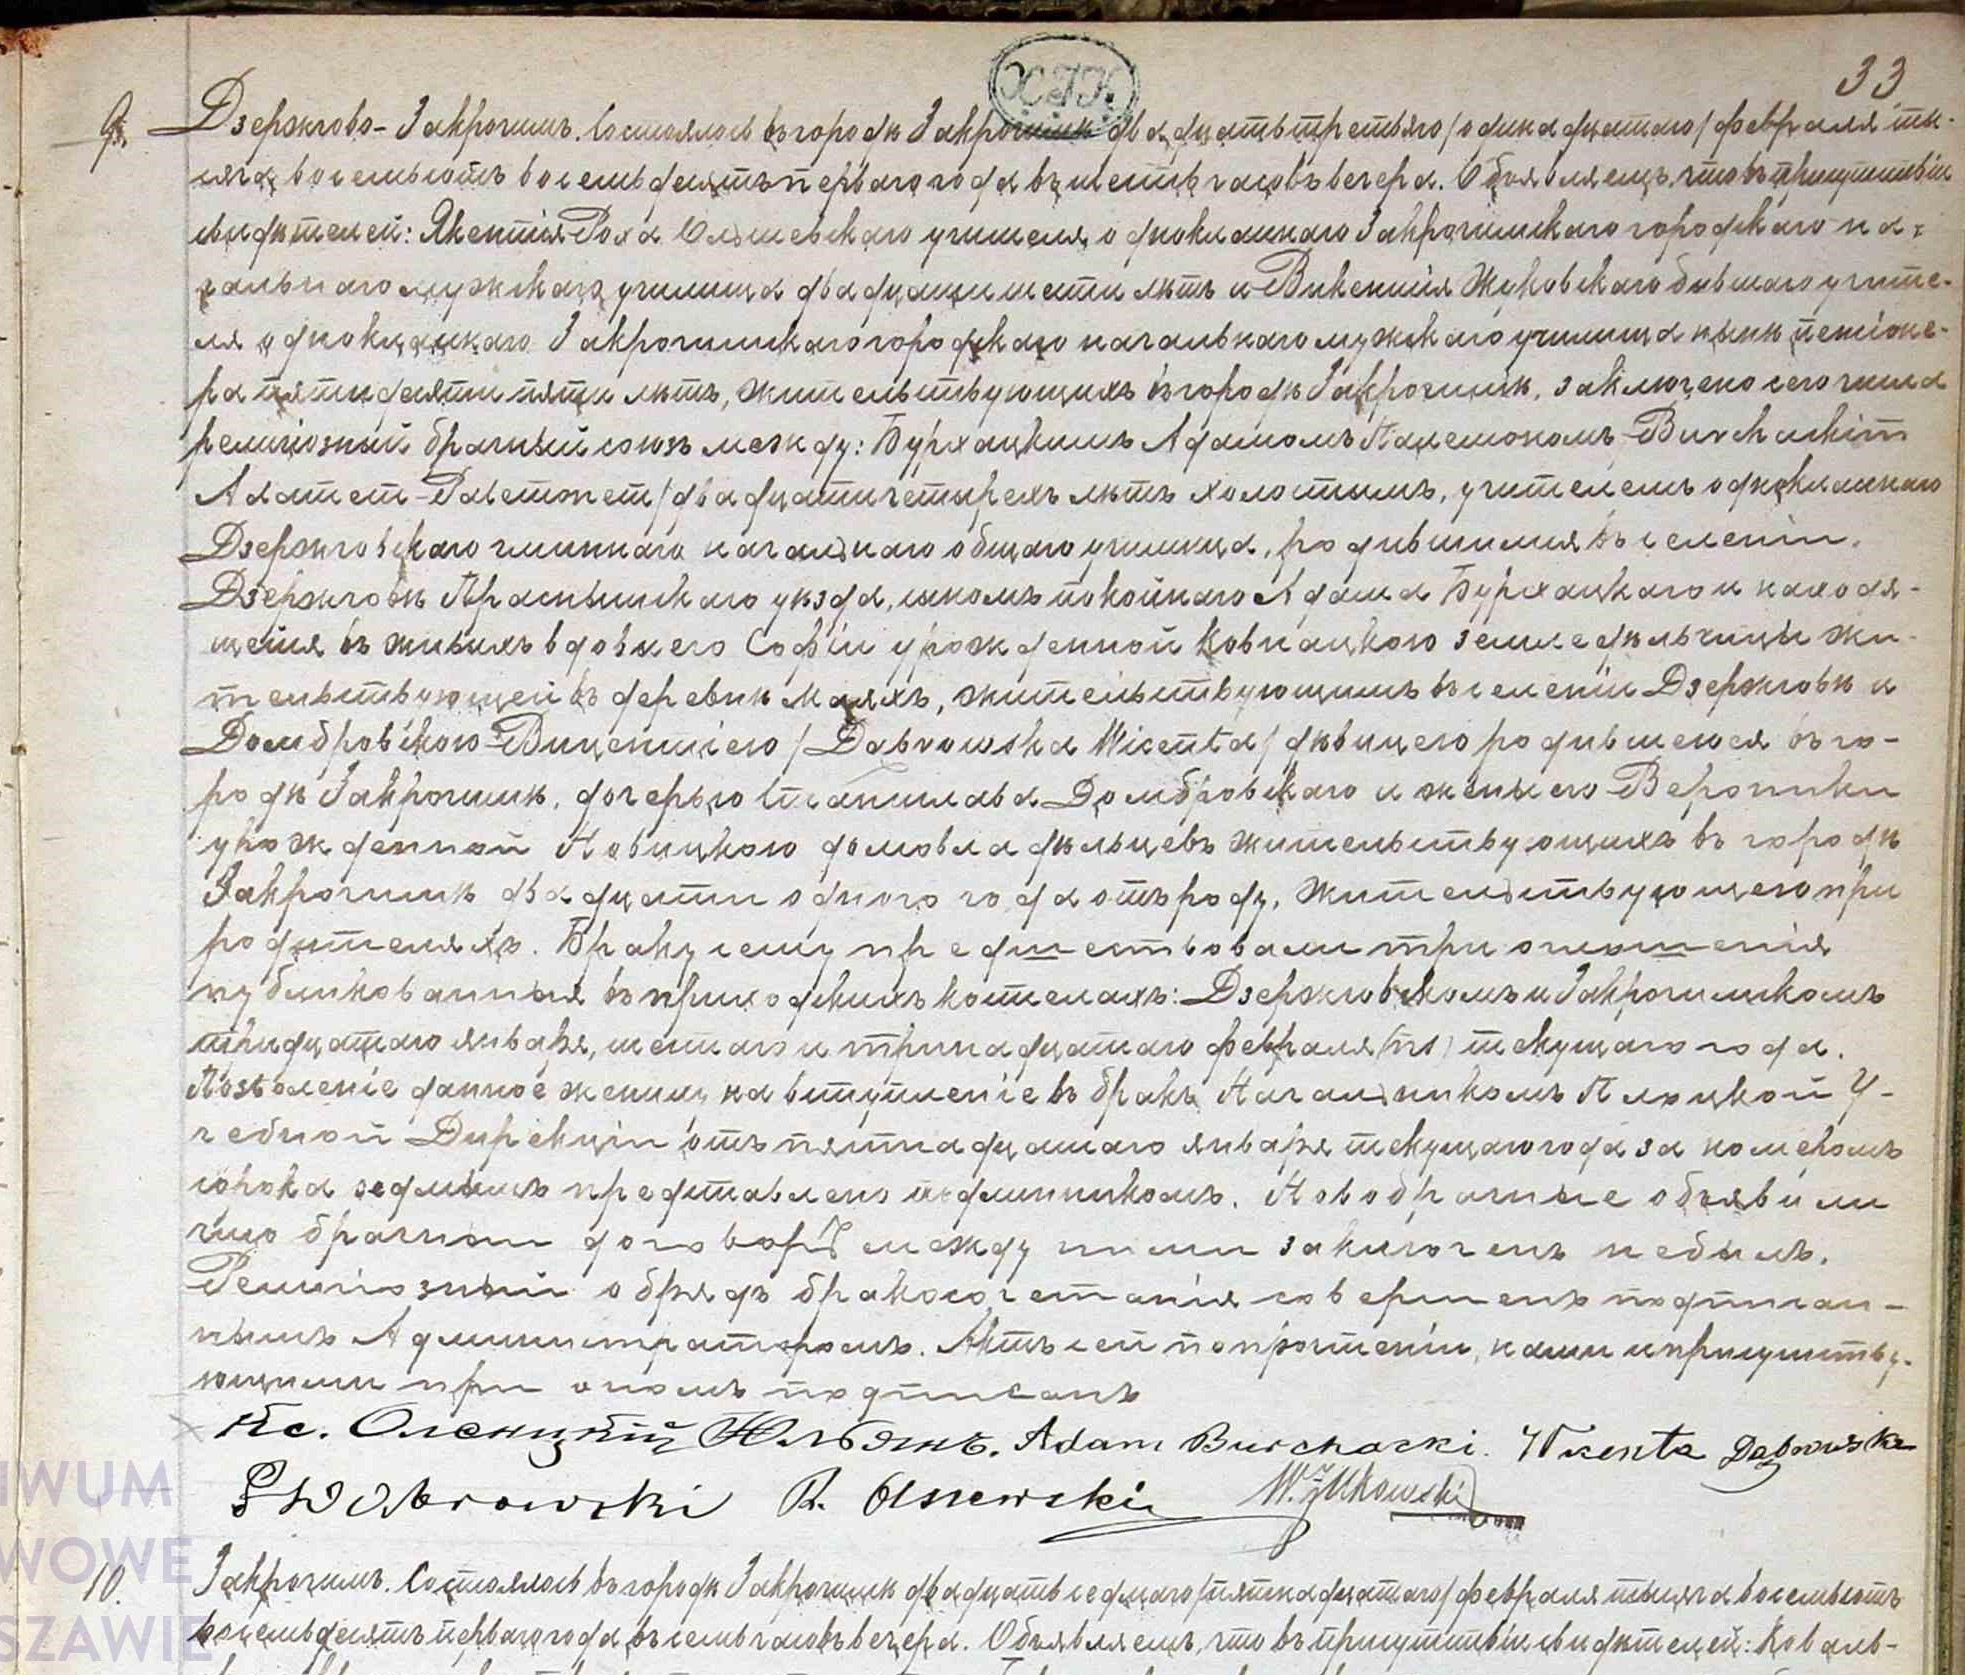 33
ХГК
9. Дзержгово-Закрочимъ. Состоялось въ городѣ Закрочимѣ двадцать третьяго /одинадцатаго/ февраля ты-
сяча восемьсотъ восемьдесятъ перваго года въ шесть часовъ вечера. Объявляемъ, что въ присутствіи
свидѣтелей: Якентія Роха Ольшевскаго учителя однокласнаго Закрочимскаго городскаго на-
чальнаго мужскаго училища двадцати шести лѣтъ и Викентія Жуковскаго бывшаго учите-
ля однокласнаго Закрочимскаго городскаго начальнаго мужскаго училища нынѣ пенсіоне-
ра пятидесяти пяти лѣтъ, жительствующихъ въ городѣ Закрочимѣ, заключено сего числа
религіозный брачный союзъ между: Бурхацкимъ Адамомъ Пацемономъ-Burchackim
Adamem-Pacemonem /двадцати четырехъ лѣтъ холостымъ, учителемъ однокласнаго
Дзержговскаго гминнаго начальнаго общаго училища, родившимся въ селеніи
Дзержговѣ Праснышскаго уѣзда, сыномъ покойнаго Адама Бурхацкаго и находя-
щейся въ живыхъ вдовы его Софіи урожденной Ковнацкою земледѣльчицы жи-
тельствующей въ деревнѣ Маяхъ, жительствующимъ въ селеніи Дзержговѣ и
Домбровскою-Вицентіею /Dąbrowska Wicenta/ дѣвицею родившеюся въ го-
родѣ Закрочимѣ, дочерью Станислава Домбровскаго и жены его Вероники
урожденной Новицкою домовладѣльцевъ жительствующихъ въ городѣ
Закрочимѣ двадцати одного года отъ роду, жительствующею при
родителяхъ. Браку сему предшествовали три оглашенія
публикованныя въ приходскихъ костелахъ: Дзержговскомъ и Закрочимскомъ
тридцатаго января, шестаго и тринадцатаго февраля (нс) текущаго года.
Позволеніе данное жениху на вступленіе въ бракъ Начальникомъ Плоцкой У-
чебной Дирекціи отъ пятнадцатаго января текущаго года за номеромъ
сорока седмымъ представлено подлинникомъ. Новобрачные объявили
что брачный договоръ между ними заключенъ небылъ.
Религіозный обрядъ бракосочетанія совершенъ подписан-
нымъ Администраторомъ. Актъ сей по прочтеніи, нами и присутству-
ющими при ономъ подписанъ
Кс. Олсницкій Юльянъ. Adam Burchacki. Wicenta Dąbrowska
S Dąbrowski R. Olszewski W. Żukowski
10. Закрочимъ. Состоялось въ городѣ Закрочимѣ двадцать седмаго /пятнадцатаго/ февраля тысяча восемьсотъ
восемьдесятъ перваго года въ семь часовъ вечера. Объявляемъ, что въ присутствіи свидѣтелей: Коваль-
IWUM
WOWE
SZAWIE